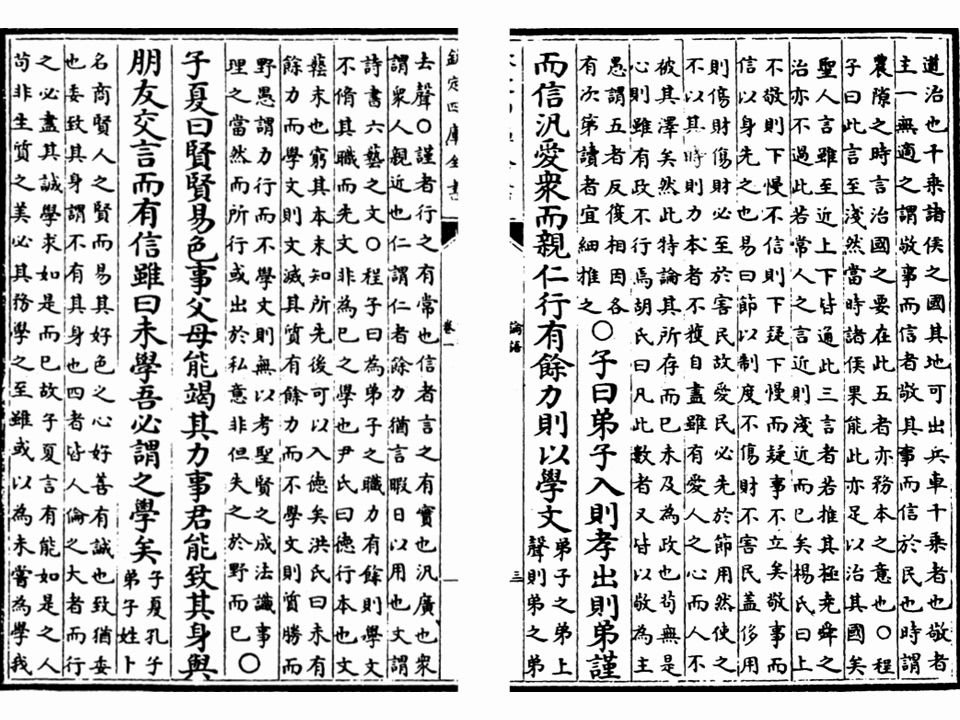 道治也千乗諸侯之國其地可出兵車千乗者也敬者
主一無適之謂敬事而信者敬其事而信於民也時謂
農隙之時言治國之要在此五者亦務本之意也○程
子曰此言至淺然當時諸侯果能此亦足以治其國矣
聖人言雖至近上下皆通此三言者若推其極堯舜之
治亦不過此若常人之言近則淺近而已矣楊氏曰上
不敬則下慢不信則下疑下慢而疑事不立矣敬事而
信以身先之也易曰節以制度不傷財不害民蓋侈用
則傷財傷財必至於害民故愛民必先於節用然使之
不以其時則力本者不獲自盡雖有愛人之心而人不
被其澤矣然此特論其所存而已未及為政也茍無是
心則雖有政不行焉胡氏曰凡此數者又皆以敬為主
愚謂五者反復相因各
有次第讀者宜細推之
○子曰弟子入則孝出則弟謹
而信汎愛衆而親仁行有餘力則以學文
弟子之弟上
聲則弟之弟
三
論語
欽定四庫全書
卷一
去聲○謹者行之有常也信者言之有實也汎廣也衆
謂衆人親近也仁謂仁者餘力猶言暇日以用也文謂
詩書六藝之文○程子曰為弟子之職力有餘則學文
不脩其職而先文非為已之學也尹氏曰徳行本也文
藝末也窮其本末知所先後可以入徳矣洪氏曰未有
餘力而學文則文滅其質有餘力而不學文則質勝而
野愚謂力行而不學文則無以考聖賢之成法識事
理之當然而所行或出於私意非但失之於野而已○
子夏曰賢賢易色事父母能竭其力事君能致其身與
朋友交言而有信雖曰未學吾必謂之學矣
子夏孔子
弟子姓卜
名商賢人之賢而易其好色之心好善有誠也致猶委
也委致其身謂不有其身也四者皆人倫之大者而行
之必盡其誠學求如是而已故子夏言有能如是之人
茍非生質之美必其務學之至雖或以為未嘗為學我